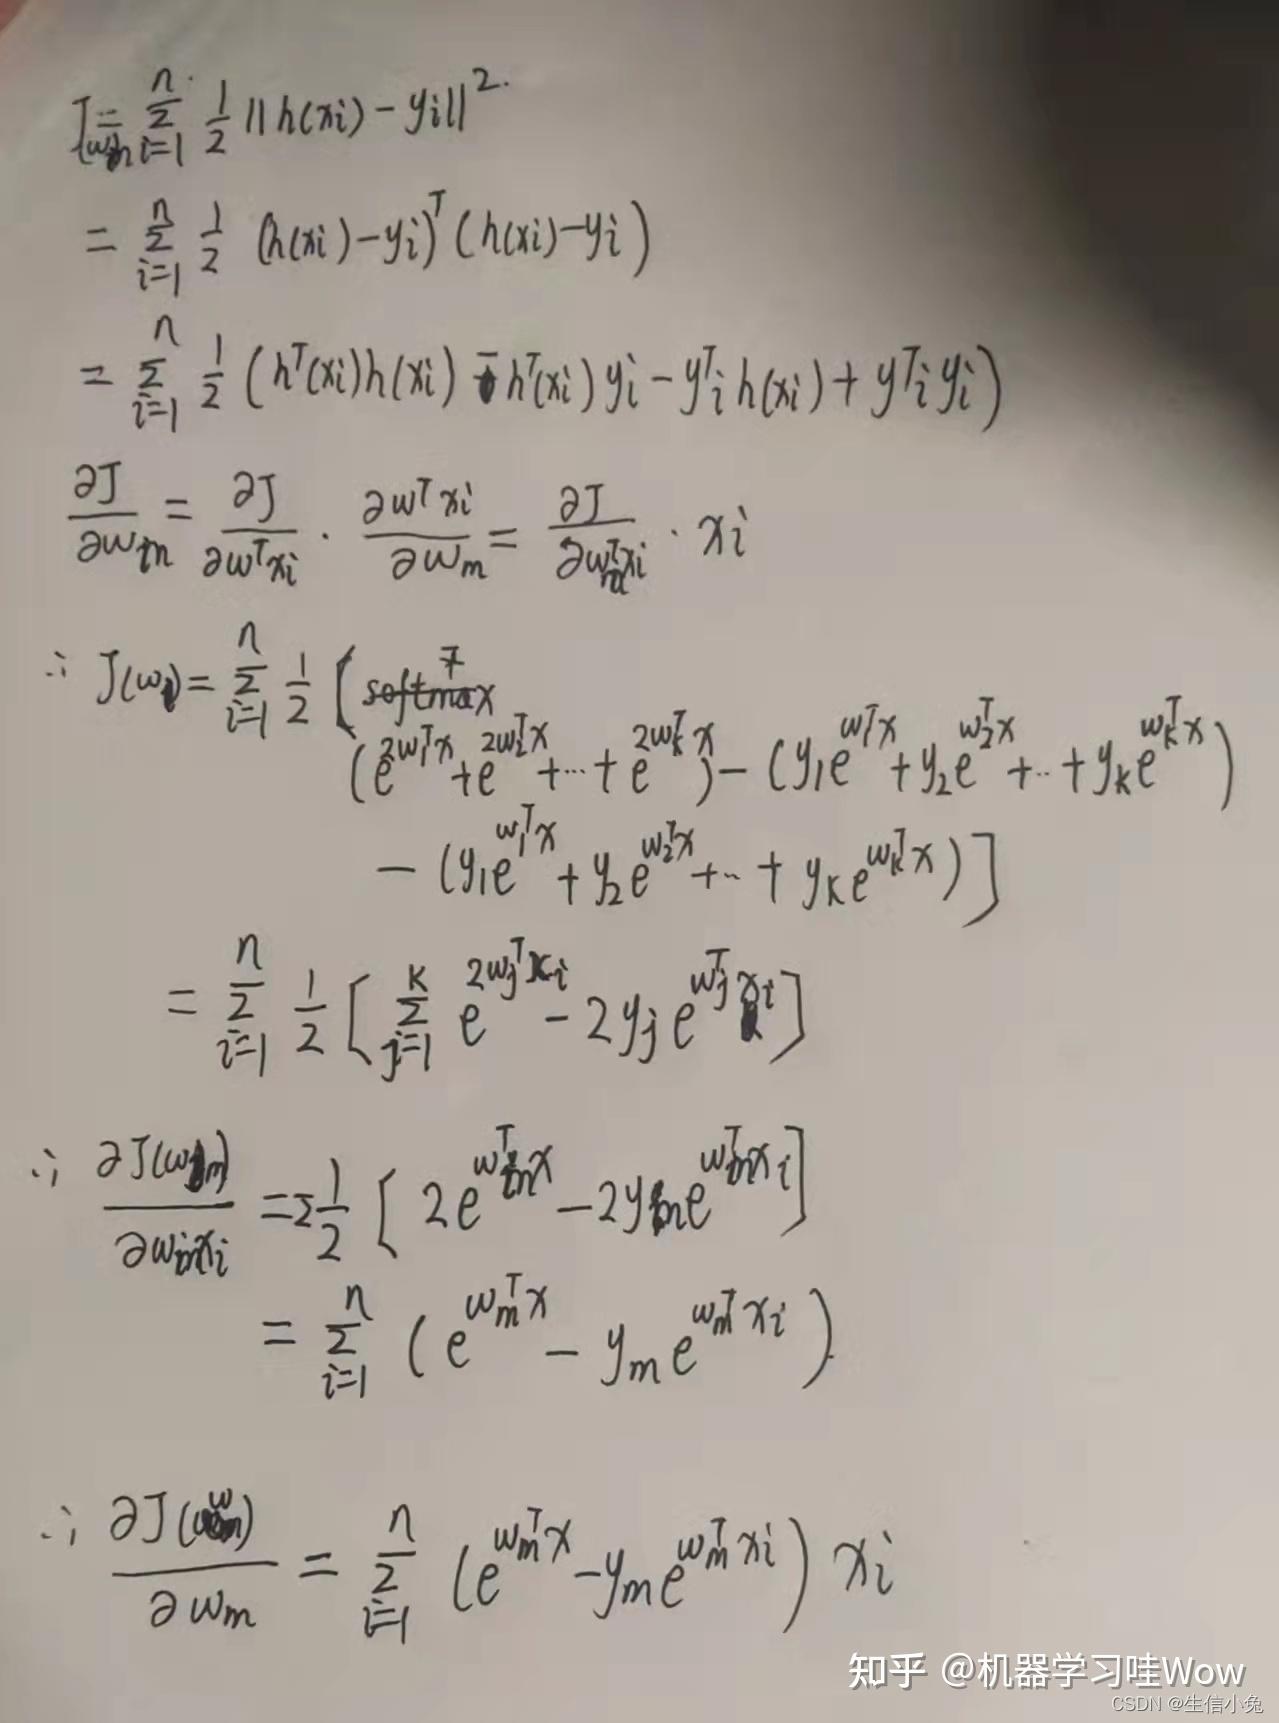 J(wm) = Σ_{i=1}^{n} 1/2 ||h(xi) - yi||².
= Σ_{i=1}^{n} 1/2 (h(xi) - yi)^T (h(xi) - yi)
= Σ_{i=1}^{n} 1/2 (h^T(xi)h(xi) - h^T(xi)yi - y^T_i h(xi) + y^T_i yi)
∂J/∂wm = ∂J/∂w^Txi · ∂w^Txi/∂wm = ∂J/∂w_m^Txi · xi
∴ J(w) = Σ_{i=1}^{n} 1/2 [
(e^{2w_1^Tx} + e^{2w_2^Tx} + ··· + e^{2w_k^Tx}) - (y1e^{w_1^Tx} + y2e^{w_2^Tx} + ·· + yke^{w_k^Tx})
- (y1e^{w_1^Tx} + y2e^{w_2^Tx} + ·· + yke^{w_k^Tx})]
= Σ_{i=1}^{n} 1/2 [Σ_{j=1}^{k} e^{2w_j^Txi} - 2yje^{w_j^Txi}]
∴ ∂J(wm)/∂wmxi = Σ 1/2 [2e^{w_m^Tx} - 2yme^{w_m^Txi}]
= Σ_{i=1}^{n} (e^{w_m^Tx} - yme^{w_m^Txi})
∴ ∂J(w)/∂wm = Σ_{i=1}^{n} (e^{w_m^Tx} - yme^{w_m^Txi}) xi
知乎 @机器学习哇Wow
CSDN @生信小兔